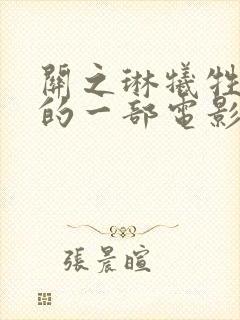 關之琳犧牲
的一部電影
張晨暄